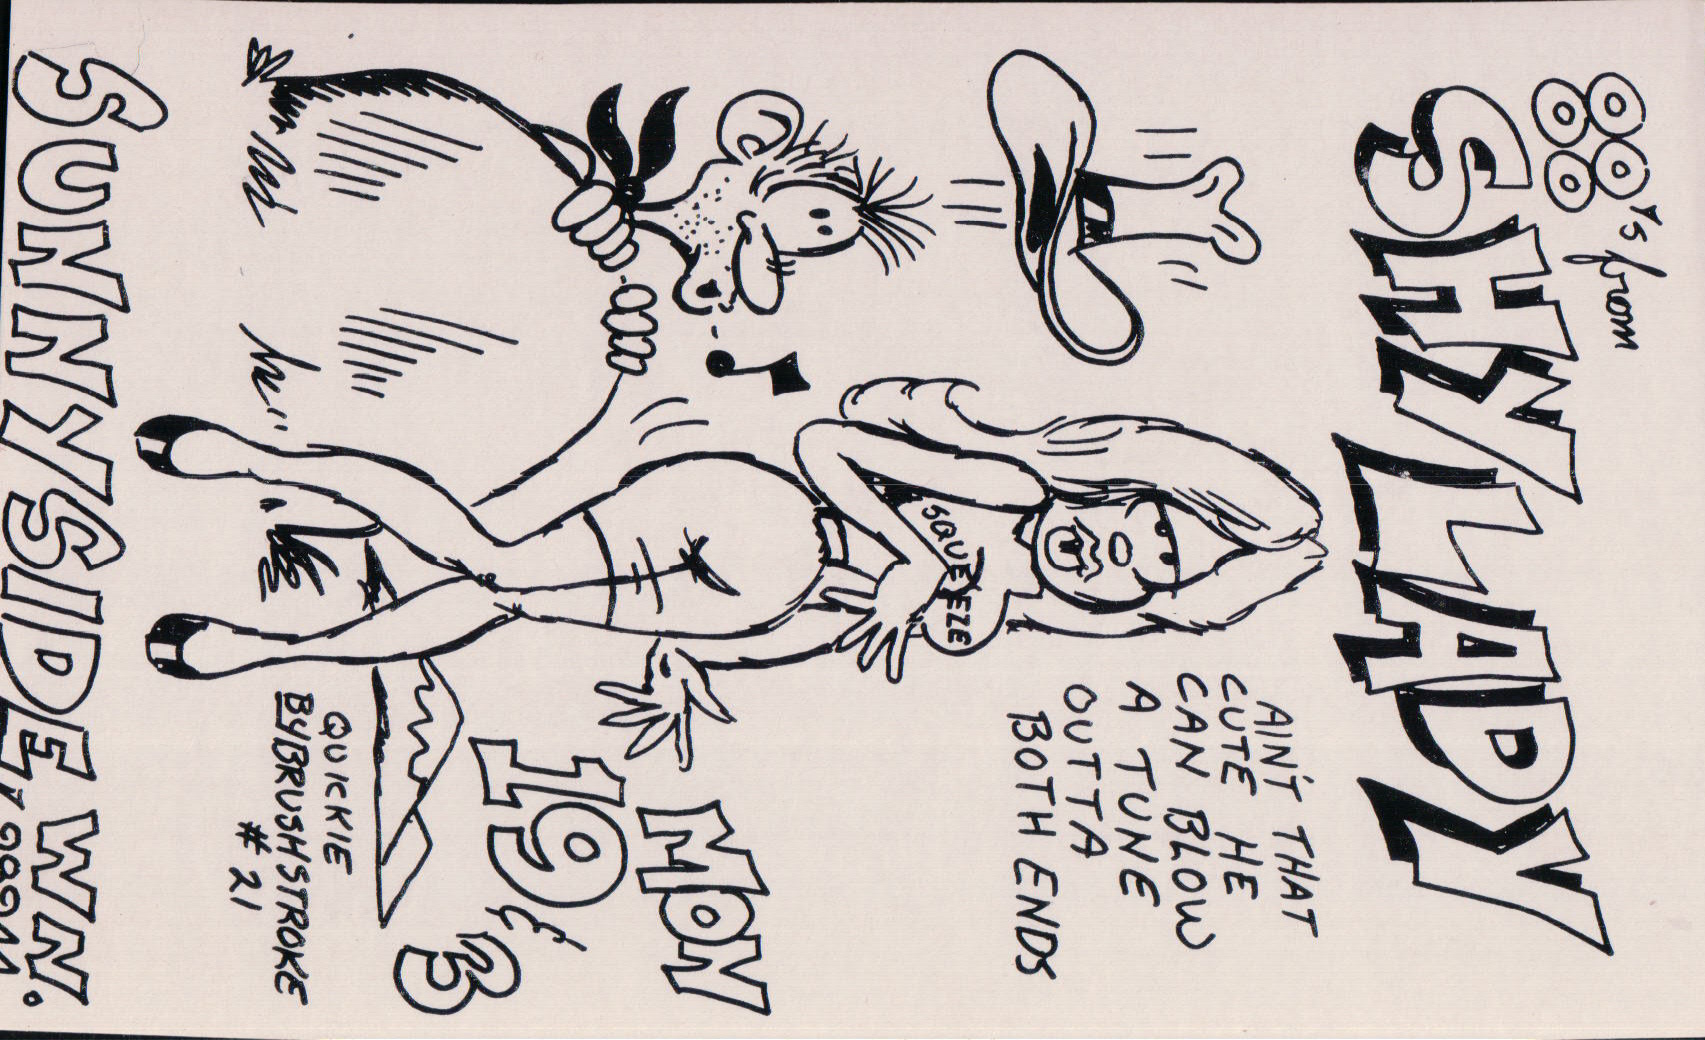 88's from
SHY LADY
AIN'T THAT
CUTE HE
CAN BLOW
A TUNE
OUTTA
BOTH ENDS
SQUEEZE
MON
19 &
B
QUICKIE
BY BRUSHSTROKE
# 21
SUNNYSIDE WN.